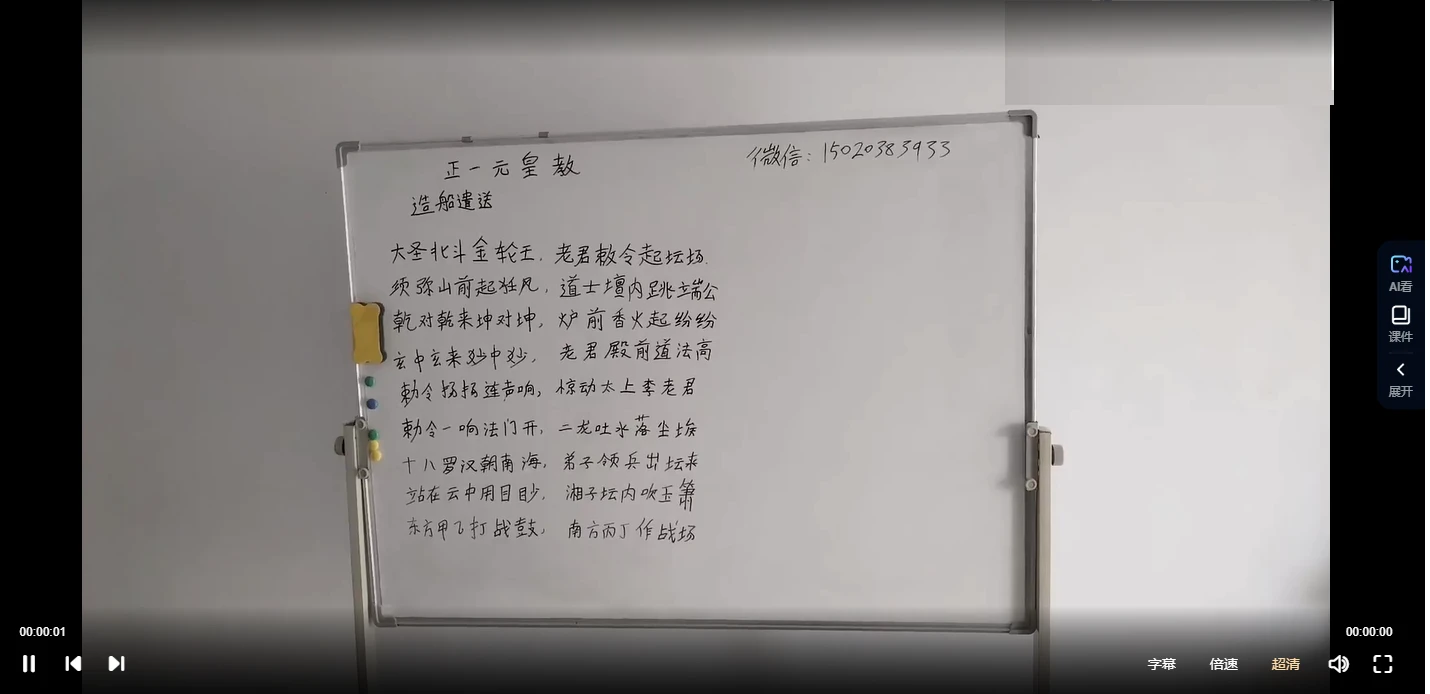 正一元皇教
微信：15020383933
造船遣送
大圣北斗金轮王．老君敕令起坛场．
须弥山前起狂风，道士壇内跳端公
乾对乾来坤对坤，炉前香火起纷纷
玄中玄来妙中妙，老君殿前道法高
勅令扬扬连声响，惊动太上李老君
勅令一响法门开，二龙吐水落尘埃
十八罗汉朝南海，弟子领兵出坛来
站在云中用目眇．湘子坛内吹玉箫
东方甲乙打战鼓，南方丙丁作战场
AI看
课件
展开
00:00:01
00:00:00
字幕
倍速
超清